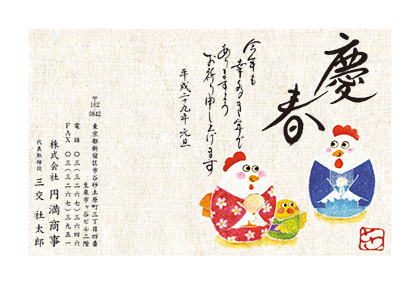 慶春
今年も
幸多き年で
ありますよう
お祈り申し上げます
平成二十九年 元旦
〒
162
0842
東京都新宿区市谷砂土原町三丁目四番
生泉市ヶ谷ビル二階
電話 〇三(三二六七)三六四四
FAX 〇三(三二六七)三九五一
株式会社 円満商事
代表取締役 三交 社太郎